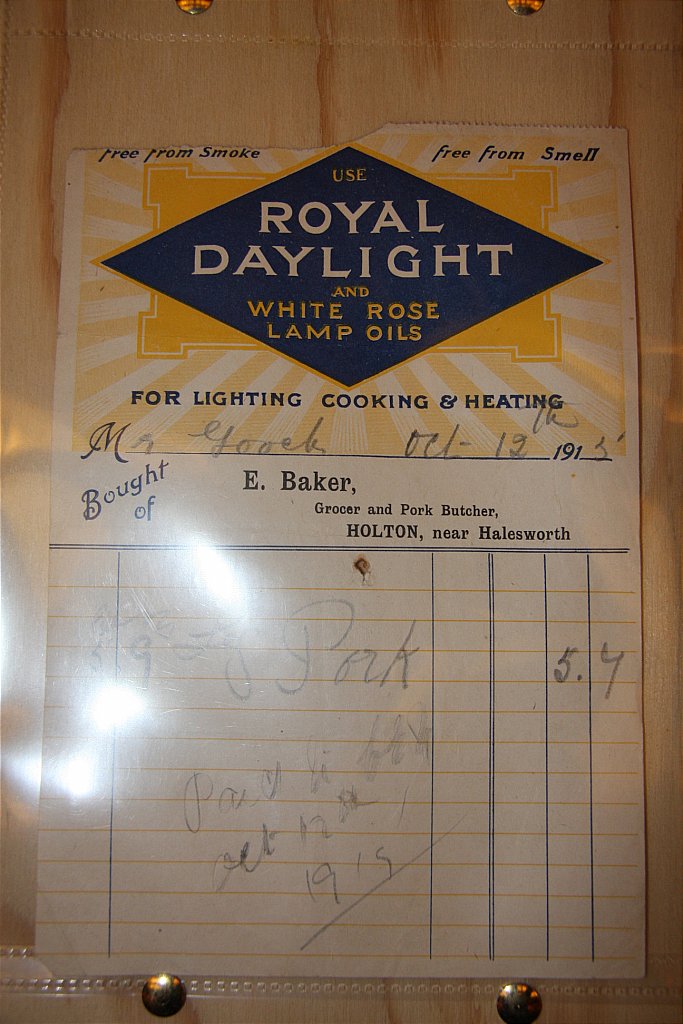 free from Smoke free from Smell
USE
ROYAL
DAYLIGHT
AND
WHITE ROSE
LAMP OILS
FOR LIGHTING COOKING & HEATING
Mr Gooch Oct 12th 1915
Bought of
E. Baker,
Grocer and Pork Butcher,
HOLTON, near Halesworth
Pork 5. 7
Paid
Oct 12th
1915